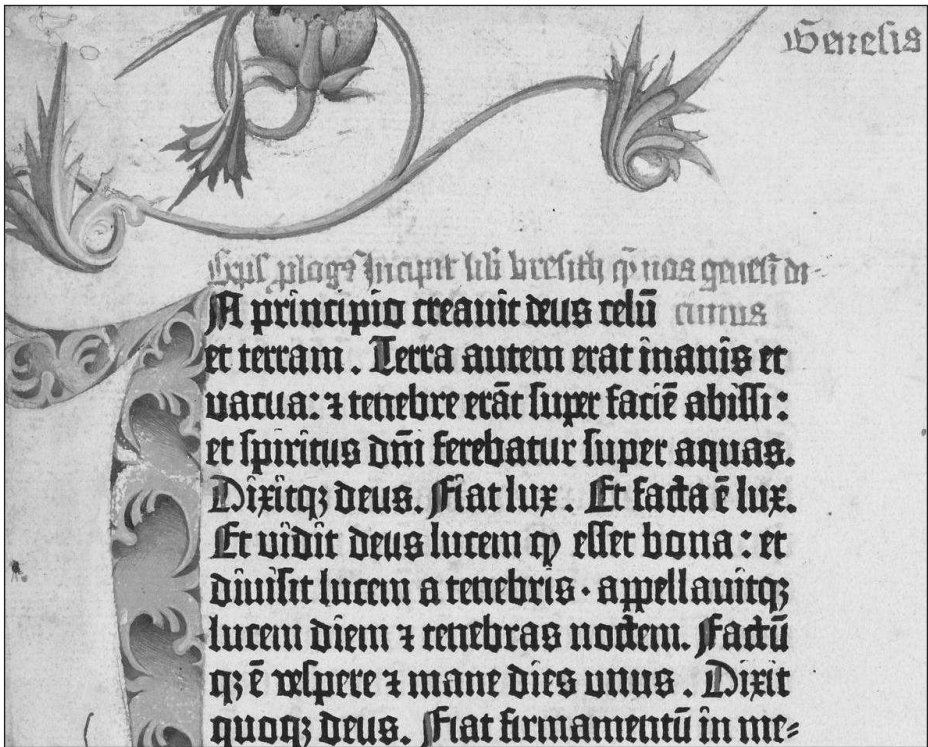 Genesis
Incipit lib̄ bresith qͣ nos genesī di-
N principio creauit deus celū cimus
et terram. Terra autem erat inanis et
vacua: ⁊ tenebre erāt super faciē abissi:
et spiritus dn̄i ferebatur super aquas.
Dixitqꝫ deus. Fiat lux. Et facta ē lux.
Et vidit deus lucem ꝙ esset bona: et
diuisit lucem a tenebris· appellauitqꝫ
lucem diem ⁊ tenebras noctem. Factū
qꝫ ē vespere ⁊ mane dies unus. Dixit
quoqꝫ deus. Fiat firmamentū in me-